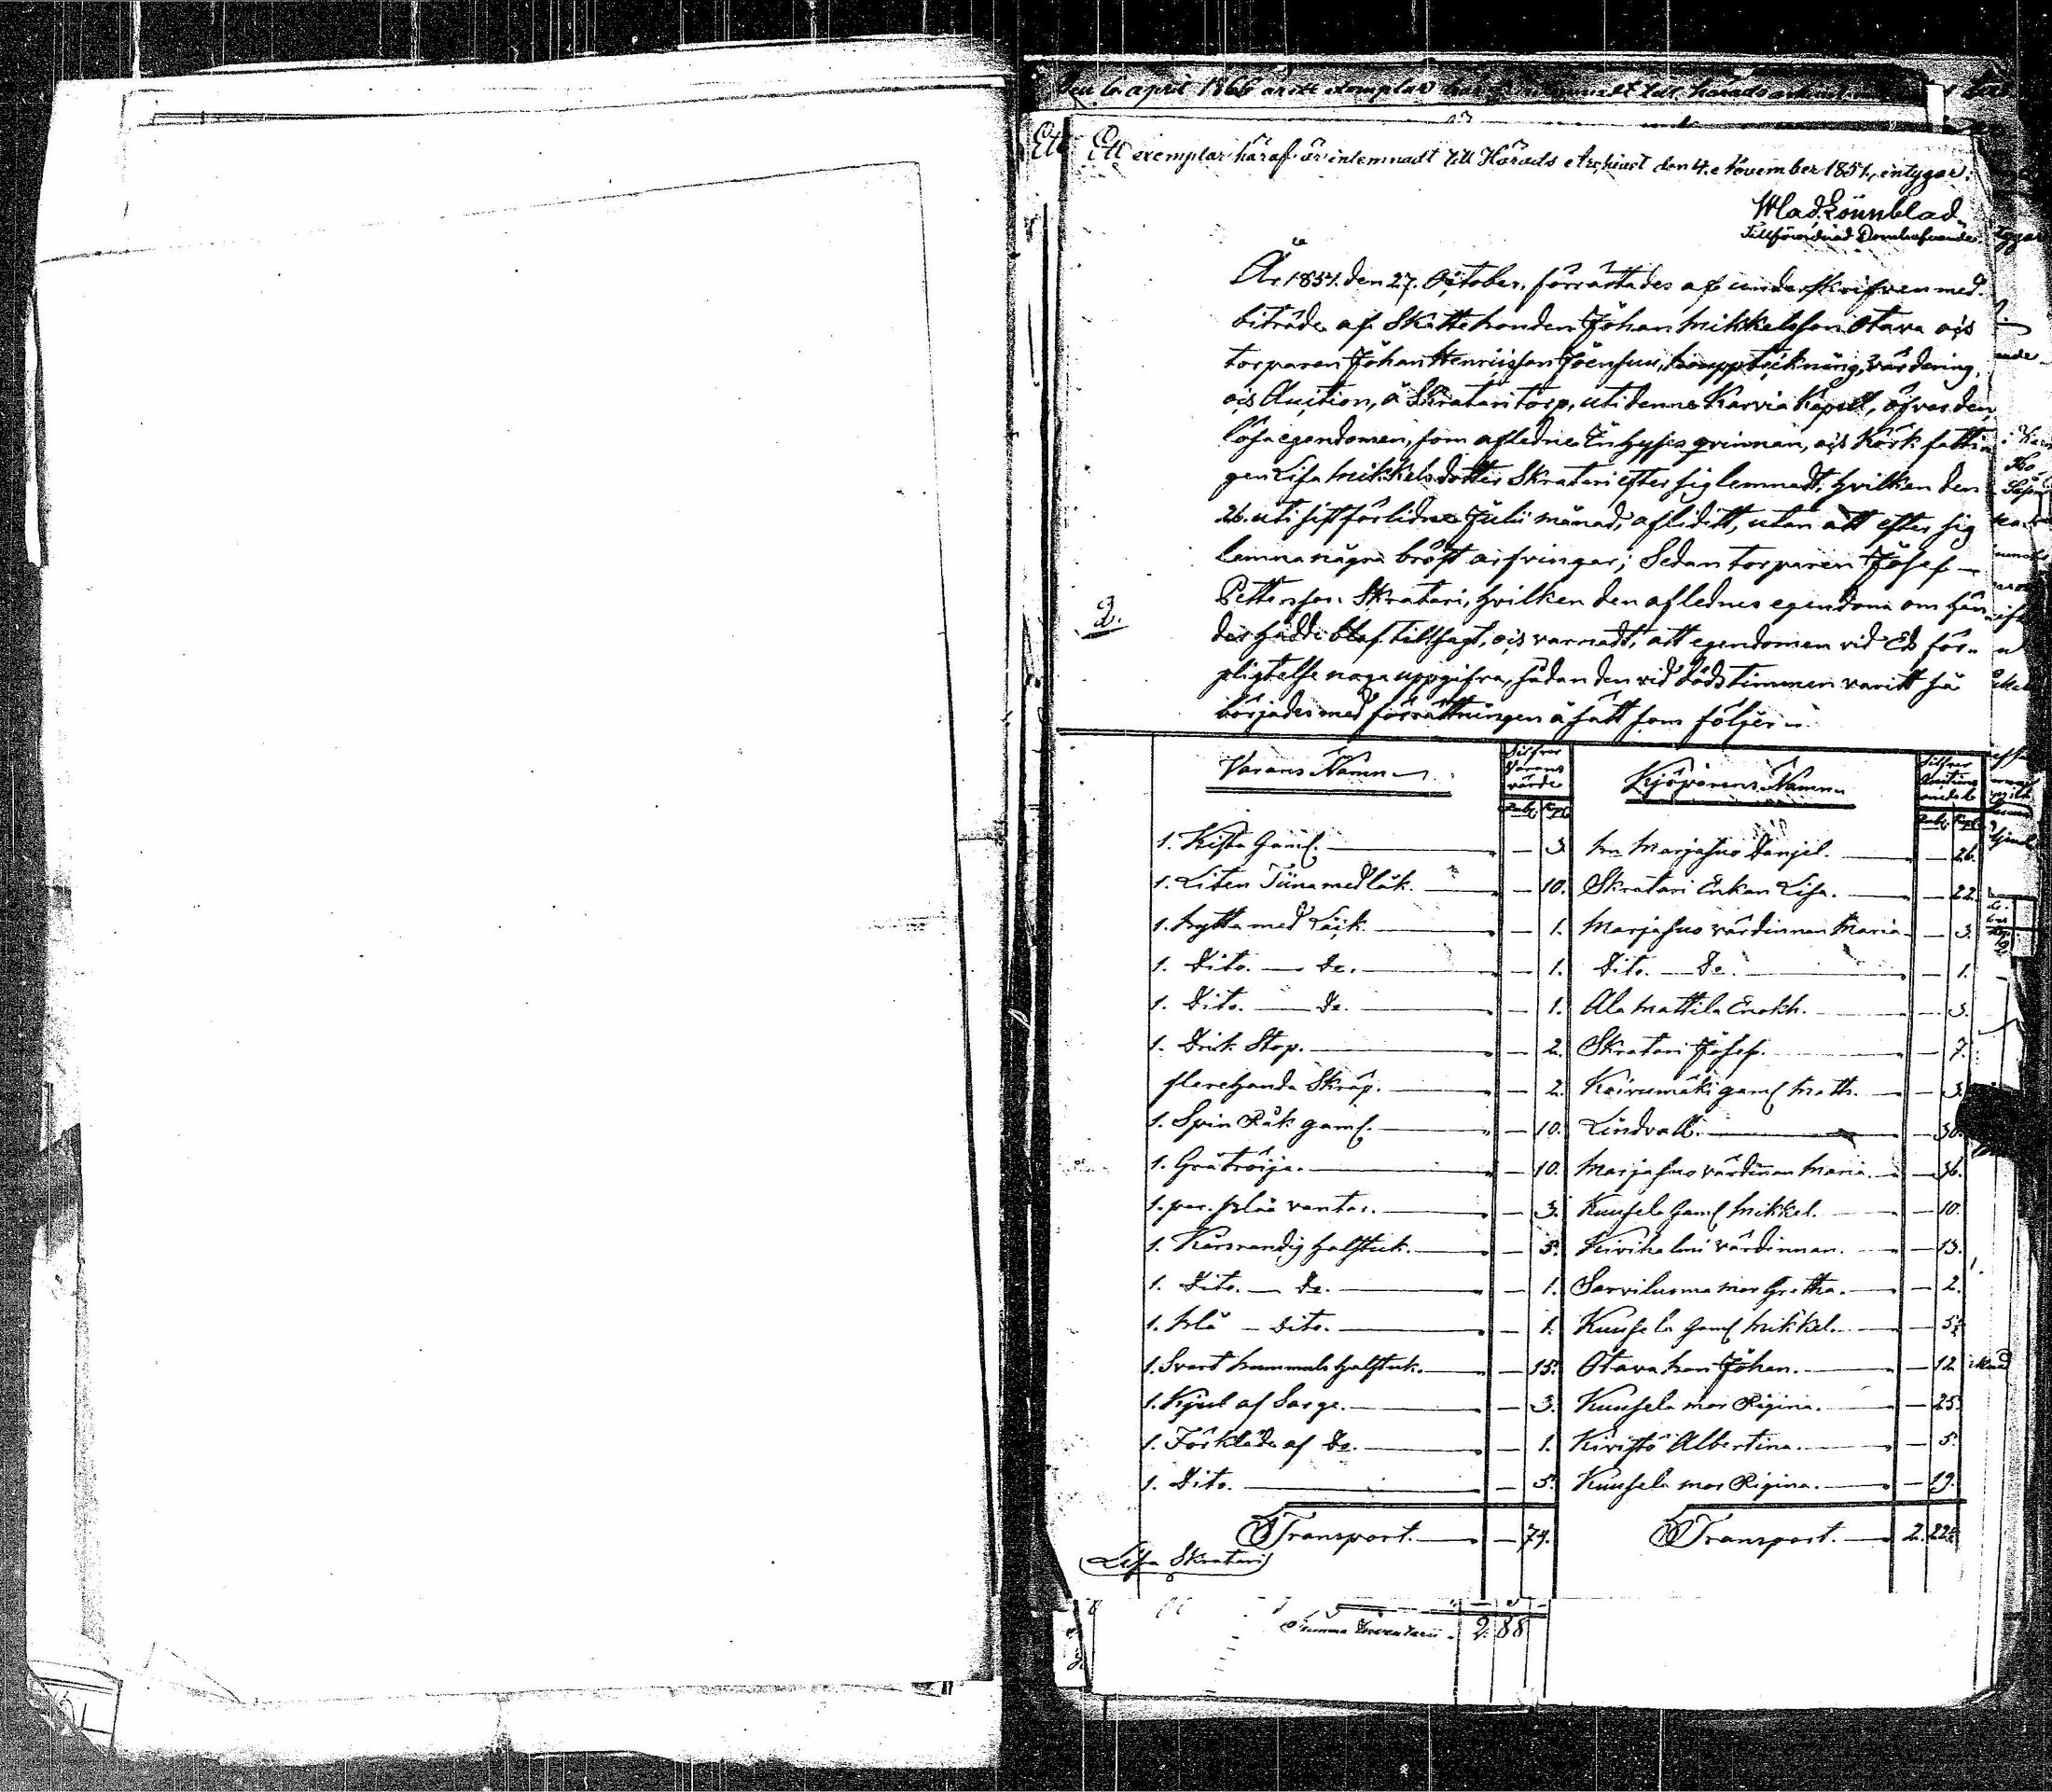 Den 6 april 1866 är ett exemplar häraf inlemnadt till härads
Ett exemplar häraf är inlemnadt till Härads Archivet den 4. November 1857., intygar:
Wlad. Lönnblad.
Tillförordnad Domhafvande.
År 1857. den 27. October, förrättades af underskrifven med
biträde af Skattebonden Johan Mikkelsson Otava och
torparen Johan Henricsson Joensuu, bouppteckning, värdering,
och Auction, å Skratari torp, uti denne Karvia Kapell, öfver den
lösa egendomen, som aflednе Inhyses qvinnan, och Kÿrk fatti-
gen Lisa Mikkelsdotter Skratari efter sig lemnadt, hvilken den
26. uti sistförlidne Julii månad, afliditt, utan att efter sig
lemna några bröst arfvingar; Sedan torparen Josef
Pettersson Skratari, hvilken den aflednes egendom om hän-
2.
der hadde blef tillsagt, och varnadt, att egendomen vid Ed för-
pligtelse noga uppgifva, sådan den vid dödstimmen varitt så
börjades med förrättningen å sätt som följer
Varans Namn Silfver Varans värde Kjöparens Namn Silfver Auctions
Rub. Kop. Rub. Kop.
1. Kista Gaml. — 3. bn Marjasuo Danjel. — 26.
1. Liten Tiina med låk. — 10. Skratari Enkan Lisa. — 22.
1. bytta med Låck — 1. Marjasuo värdinnan Maria — 3.
1. Dito. — Do. — 1. Dito. — Do. — 1.
1. Dito. — Do. — 1. Ala Mattila Enokh. — 3.
1. Drik Stop. — 2. Skratari Josef. — 7.
flerehanda Skräp. — 2. Koivumäki gaml Matts. — 3.
1. Spin Råk gaml. — 10. Lindvall. — 30.
1. Grå tröija. — 10. Marjasuo värdinnan Maria. — 36.
1. par. blåa vantar. — 3. Kuusela Gaml Mikkel. — 10.
1. Karsrandig halstuk. — 5. Kivihalmi värdinnan. — 13.
1. Dito. — Do. — 1. Sarvilusma mor Gretha. — 2.
1. blå — dito. — 1. Kuusela Gaml Mikkel. — 5½
1. Svart bummuls halstuk. — 15. Otava bon Johan. — 12
1. Kjul af Sarge. — 3. Kuusela mor Rigina. — 25.
1. Förkläde af Do. — 1. Kivistö Albertina. — 5.
1. Dito. — 5. Kuusela mor Rigina. — 19.
Transport. — 74. Transport. — 2. 22½
Lisa Skratari
Summa Inventarii. 2. 88